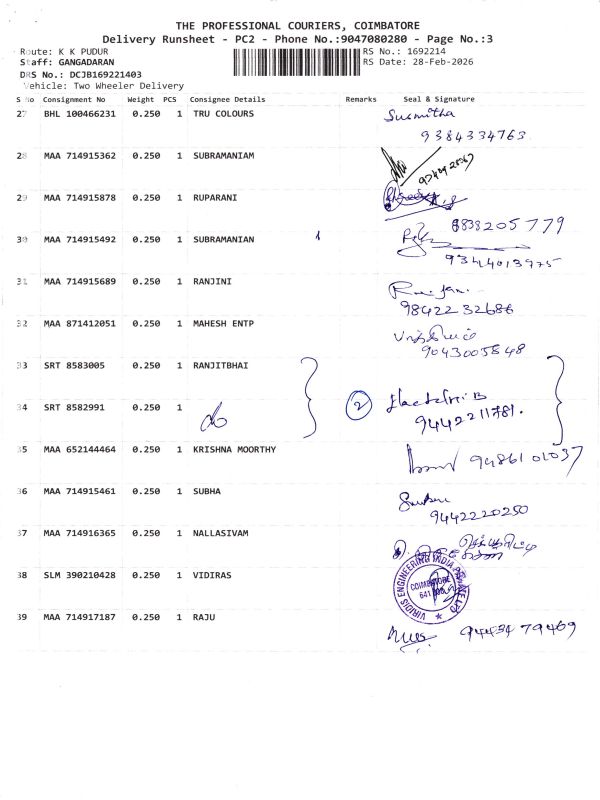 THE PROFESSIONAL COURIERS, COIMBATORE
Delivery Runsheet - PC2 - Phone No.:9047080280 - Page No.:3
Route: K K PUDUR
RS No.: 1692214
Staff: GANGADARAN
RS Date: 28-Feb-2026
DRS No.: DCJB169221403
Vehicle: Two Wheeler Delivery
S No Consignment No Weight PCS Consignee Details Remarks Seal & Signature
27 BHL 100466231 0.250 1 TRU COLOURS Susmitha
9384334763
28 MAA 714915362 0.250 1 SUBRAMANIAM
29 MAA 714915878 0.250 1 RUPARANI
8838205779
30 MAA 714915492 0.250 1 SUBRAMANIAN
9344013975
31 MAA 714915689 0.250 1 RANJINI
9842232686
32 MAA 871412051 0.250 1 MAHESH ENTP
9043005848
33 SRT 8583005 0.250 1 RANJITBHAI
34 SRT 8582991 0.250 1 2
9442211781.
35 MAA 652144464 0.250 1 KRISHNA MOORTHY 9486101037
36 MAA 714915461 0.250 1 SUBHA
9442220250
37 MAA 714916365 0.250 1 NALLASIVAM
38 SLM 390210428 0.250 1 VIDIRAS
VIRIDIS ENGINEERING INDIA PRIVATE LTD
COIMBATORE
39 MAA 714917187 0.250 1 RAJU